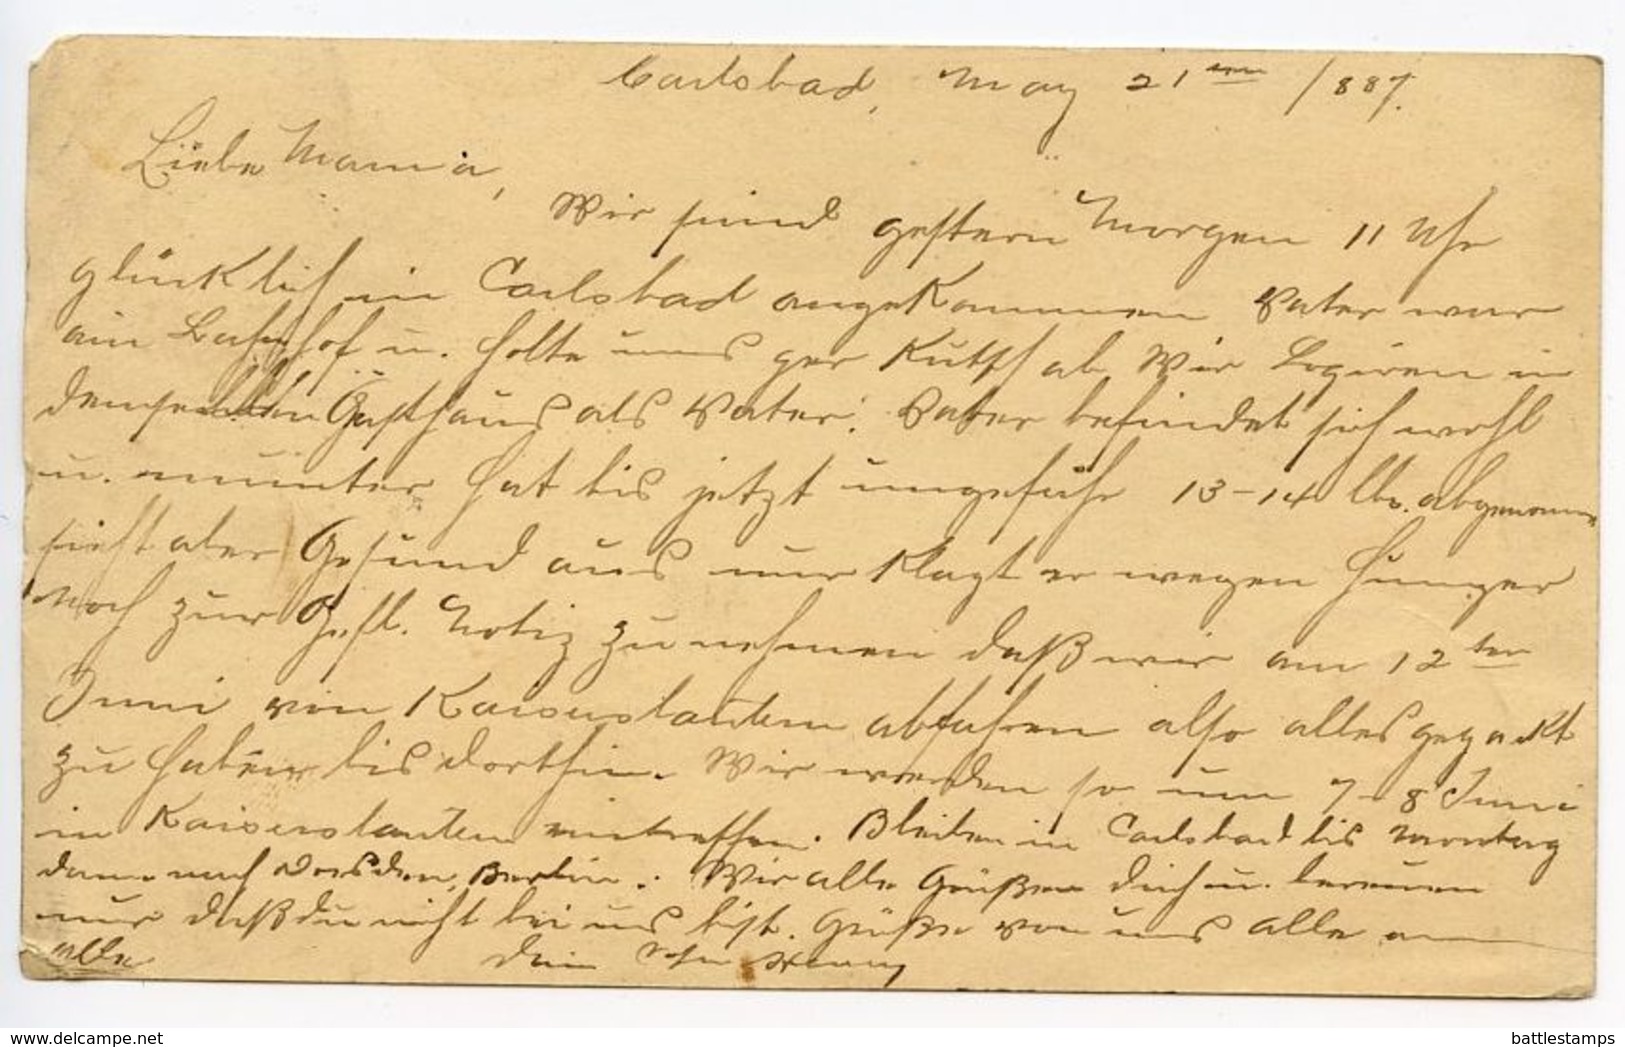 Carlsbad, May 21ten 1887.
Liebe Mama,
Wir sind gestern Morgen 11 Uhr
glücklich in Carlsbad angekommen Vater war
am Bahnhof u. holte uns per Kutsch ab Wir Logiren in
demselben Gasthaus als Vater. Vater befindet sich wohl
u. munter hat bis jetzt ungefähr 13-14 lbs. abgenommen
sieht aber Gesund aus nur klagt er wegen Hunger
Noch zur Gefl. Notiz zu nehmen daß wir am 12ten
Juni von Kaiserslautern abfahren also alles gepackt
zu haben bis dorthin. Wir werden so um 7-8 Juni
in Kaiserslautern eintreffen. Bleiben in Carlsbad bis Montag
dann nach Dresden, Berlin. Wir alle Grüßen dich u. bereuen
nur daß du nicht bei uns bist. Grüße von uns alle an
alle Dein Sohn Henry
hippostcard.com
battlestamps